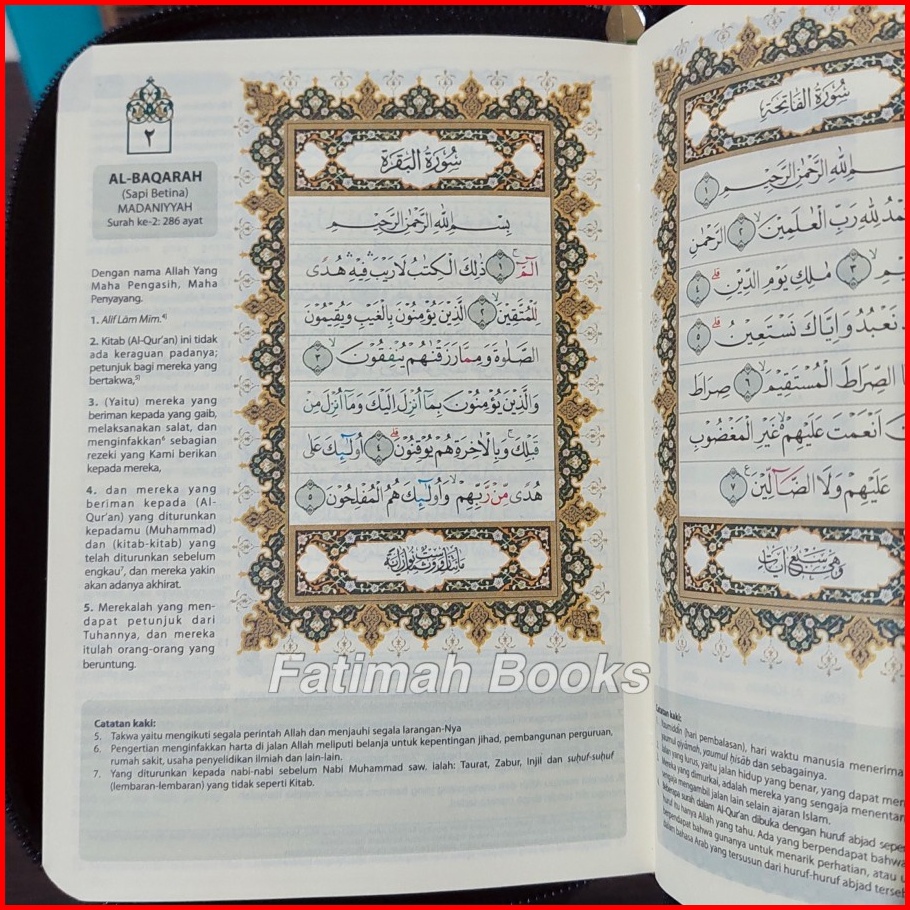 ٢
AL-BAQARAH
(Sapi Betina)
MADANIYYAH
Surah ke-2: 286 ayat
Dengan nama Allah Yang
Maha Pengasih, Maha
Penyayang.
1. Alif Lām Mīm.⁴⁾
2. Kitab (Al-Qur'an) ini tidak
ada keraguan padanya;
petunjuk bagi mereka yang
bertakwa,⁵⁾
3. (Yaitu) mereka yang
beriman kepada yang gaib,
melaksanakan salat, dan
menginfakkan⁶ sebagian
rezeki yang Kami berikan
kepada mereka,
4. dan mereka yang
beriman kepada (Al-
Qur'an) yang diturunkan
kepadamu (Muhammad)
dan (kitab-kitab) yang
telah diturunkan sebelum
engkau⁷, dan mereka yakin
akan adanya akhirat.
5. Merekalah yang men-
dapat petunjuk dari
Tuhannya, dan mereka
itulah orang-orang yang
beruntung.
سُوْرَةُ الْبَقَرَةِ
بِسْمِ اللّٰهِ الرَّحْمٰنِ الرَّحِيْمِ
الۤمّۤ ۚ ١ ذٰلِكَ الْكِتٰبُ لَا رَيْبَ ۛ فِيْهِ ۛ هُدًى
لِّلْمُتَّقِيْنَۙ ٢ الَّذِيْنَ يُؤْمِنُوْنَ بِالْغَيْبِ وَيُقِيْمُوْنَ
الصَّلٰوةَ وَمِمَّا رَزَقْنٰهُمْ يُنْفِقُوْنَۙ ٣
وَالَّذِيْنَ يُؤْمِنُوْنَ بِمَآ اُنْزِلَ اِلَيْكَ وَمَآ اُنْزِلَ مِنْ
قَبْلِكَ ۚ وَبِالْاٰخِرَةِ هُمْ يُوْقِنُوْنَۗ ٤ اُولٰۤىِٕكَ عَلٰى
هُدًى مِّنْ رَّبِّهِمْ ۙ وَاُولٰۤىِٕكَ هُمُ الْمُفْلِحُوْنَ ٥
Fatimah Books
Catatan kaki:
5. Takwa yaitu mengikuti segala perintah Allah dan menjauhi segala larangan-Nya
6. Pengertian menginfakkan harta di jalan Allah meliputi belanja untuk kepentingan jihad, pembangunan perguruan,
rumah sakit, usaha penyelidikan ilmiah dan lain-lain.
7. Yang diturunkan kepada nabi-nabi sebelum Nabi Muhammad saw. ialah: Taurat, Zabur, Injil dan suḥuf-suḥuf
(lembaran-lembaran) yang tidak seperti Kitab.
سُوْرَةُ الْفَاتِحَةِ
اللّٰهِ الرَّحْمٰنِ الرَّحِيْمِ ١
لِلّٰهِ رَبِّ الْعٰلَمِيْنَۙ ٢ الرَّحْمٰنِ
٣ مٰلِكِ يَوْمِ الدِّيْنِۗ ٤
نَعْبُدُ وَاِيَّاكَ نَسْتَعِيْنُۗ ٥
الصِّرَاطَ الْمُسْتَقِيْمَۙ ٦ صِرَاطَ
اَنْعَمْتَ عَلَيْهِمْ ەۙ غَيْرِ الْمَغْضُوْبِ
عَلَيْهِمْ وَلَا الضَّاۤلِّيْنَ ٧
وهي سبع آيات
Catatan kaki:
(hari pembalasan), hari waktu manusia menerima
yaumul qiyāmah, yaumul ḥisāb dan sebagainya.
Jalan yang lurus, yaitu jalan hidup yang benar, yang dapat
Mereka yang dimurkai, adalah mereka yang sengaja
sengaja mengambil jalan lain selain ajaran Islam.
Beberapa surah dalam Al-Qur'an dibuka dengan huruf abjad
huruf itu hanya Allah yang tahu. Ada yang berpendapat bahwa
berpendapat bahwa gunanya untuk menarik perhatian, atau
dalam bahasa Arab yang tersusun dari huruf-huruf abjad